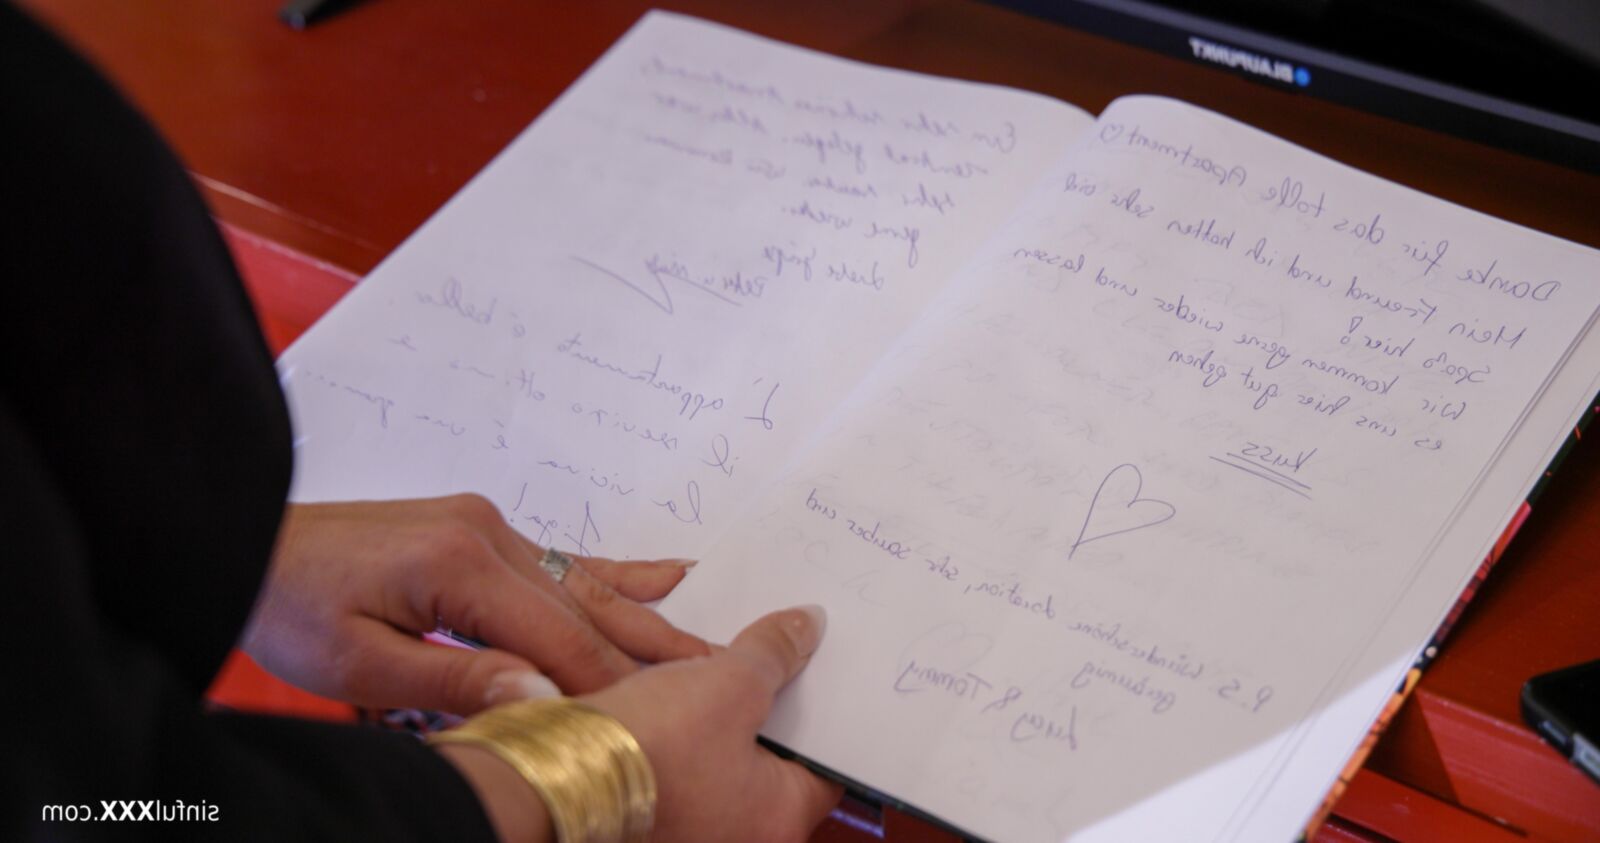 Ein sehr schönes Apartment,
zentral gelegen. Alles war
sehr sauber. Wir kommen
gerne wieder.
Liebe Grüße
L'appartamento è bello
il servizio ottimo e
la vicina è una gran...
figa!
Danke für das tolle Apartment ♡
Mein Freund und ich hatten sehr viel
Spaß hier!
Wir kommen gerne wieder und lassen
es uns hier gut gehen
Kuss
P.S. Wunderschöne Location, sehr sauber und
geräumig
Lucy & Tommy
BLAUPUNKT
sinfulXXX.com